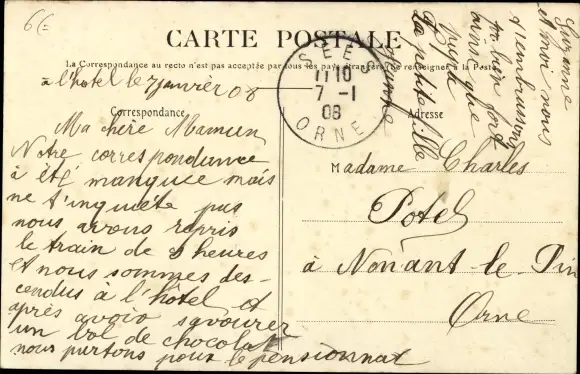 6f
CARTE POSTALE
La Correspondance au recto n'est pas acceptée par tous les pays étrangers (Se renseigner à la Poste)
à l'hotel le 7 janvier 08
SÉES
11 10
7 -1
08
ORNE
Correspondance
Adresse
Ma chère Maman,
Notre correspondance
à été manquée mais
ne t'inquiète pas
nous avons repris
le train de 8 heures
et nous sommes des-
cendus à l'hôtel et
après avoir savourer
un bol de chocolat
nous partons pour le pensionnat
Suzanne
et moi nous
t'embrassons
bien fort
ta petite fille
Madame Charles
Potel
à Nonant-le-Pin
Orne